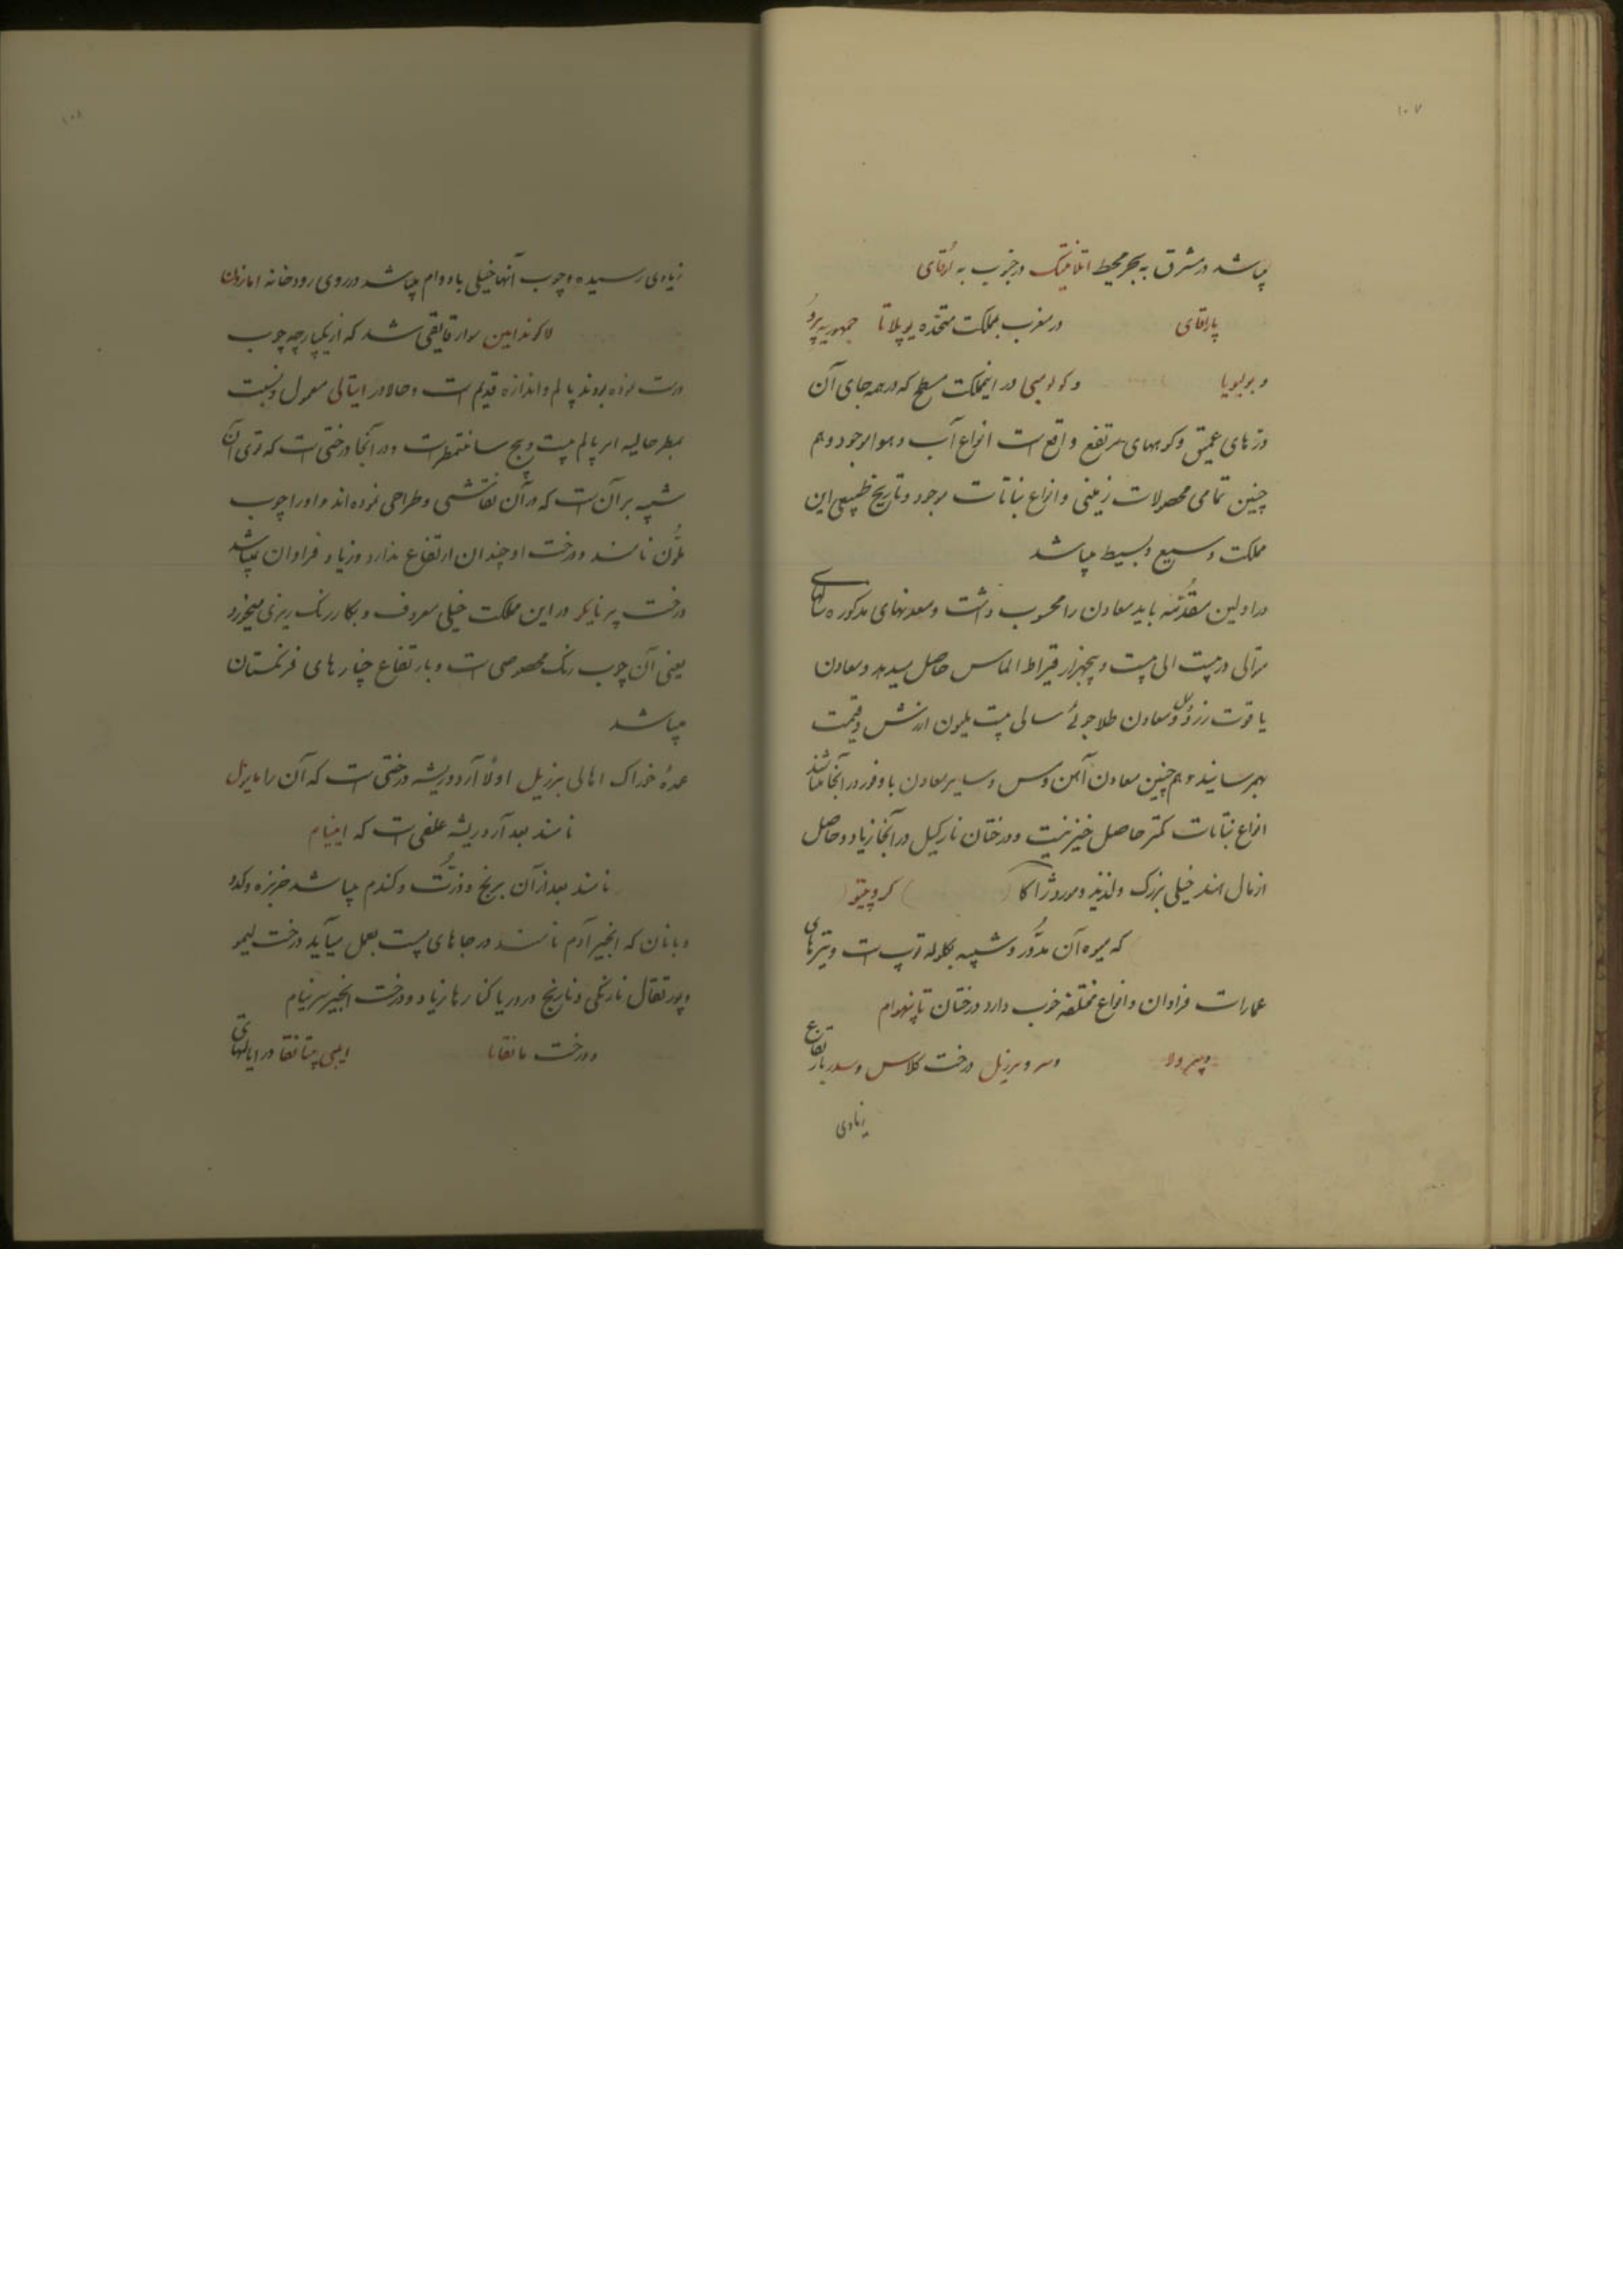 ۱۰۷
میباشد در مشرق به بحر محیط اتلانتیک در جنوب به ارقای
پاراقای در مغرب بمملکت متحده یوپلاتا جمهوریه پرو
و بولیویا و کولومبی در اینمملکت مسطح که در همه جای آن
درّهای عمیق و کوههای مرتفع واقع است انواع آب و هوا موجود و هم
چنین تمامی محصولات زمینی و انواع نباتات موجود و تاریخ طبیعی این
مملکت وسیع و بسیط میباشد
در اولین مقدّمه باید معادن را محسوب داشت و معدنهای مذکوره سالهای
مرتالی دویست الی بیست و پنجهزار قیراط الماس حاصل میدهد و معادن
یاقوت زرد و معادن طلا جوئی سالی بیست ملیون ارزش و قیمت
بهمرسانید و هم چنین معادن آهن و مس و سایر معادن با وفور در آنجا میباشند
انواع نباتات کمتر حاصل خیز نیست و درختان نارکیل در آنجا زیاد و حاصل
از مال هند خیلی بزرگ و لذیذ و موردژاکا ( )
که میوه آن مدّور و شبیه بگلوله توپ است و تیرهای
عمارات فراوان و انواع مختلفه خوب دارد درختان تاپنهوام
و سرو برزیل درخت کلاس و سدر بارتفاع
زیادی
۱۰۸
زیادی رسیده و چوب آنها خیلی بادوام میباشد در روی رودخانه امازون
لاکوندامین سوار قایقی شد که از یکپارچه چوب
درست نموده بودند پالم و اندازه قدیم است و حالا در ایتالی معمول و نسبت
بمطر حالیه هر پالم بیست و پنج سانتمطر است و در آنجا درختی است که توی آن
شبیه بر آن است که در آن نقاشی و طراحی نموده اند و او را چوب
نامند و درخت او چندان ارتفاع ندارد و زیاد فراوان میباشد
درخت پرنابکو در این مملکت خیلی معروف و بکار رنگ ریزی میخورد
یعنی آن چوب رنگ مخصوصی است و بارتفاع چنارهای فرنکستان
میباشد
عمدهٔ خوراک اهالی برزیل اولا آرد و ریشه درختی است که آن را
نامند بعد آرد ریشه علفی است که اینیام
نامند بعد از آن برنج و ذرّت و گندم میباشد خربزه و کدو
و بانان که انجیر آدم نامند در جاهای پست بعمل میآید درخت لیمو
و پورتقال نارنگی و نارنج در دریا کنارها زیاد و درخت انجیر سرنیام
و درخت مانقابا ایبی پیتانقا در ایالتهای